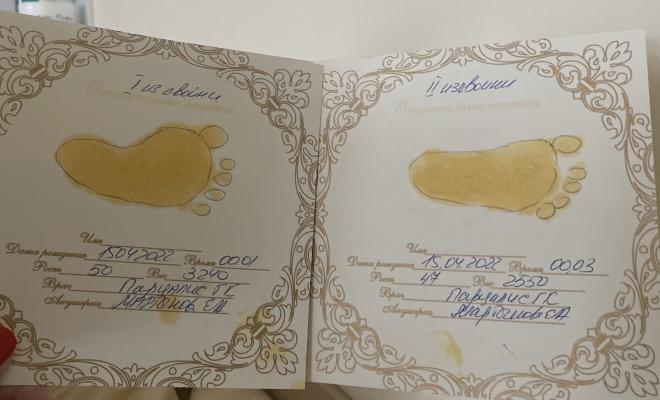 I из двойни
Отпечаток ножки
Имя
Дата рождения 15.04.2022 Время 00.01
Рост 50 Вес 3240
Врач
Акушерка
II из двойни
Отпечаток ножки
Имя
Дата рождения 15.04.2022 Время 00.03
Рост 47 Вес 2550
Врач
Акушерка